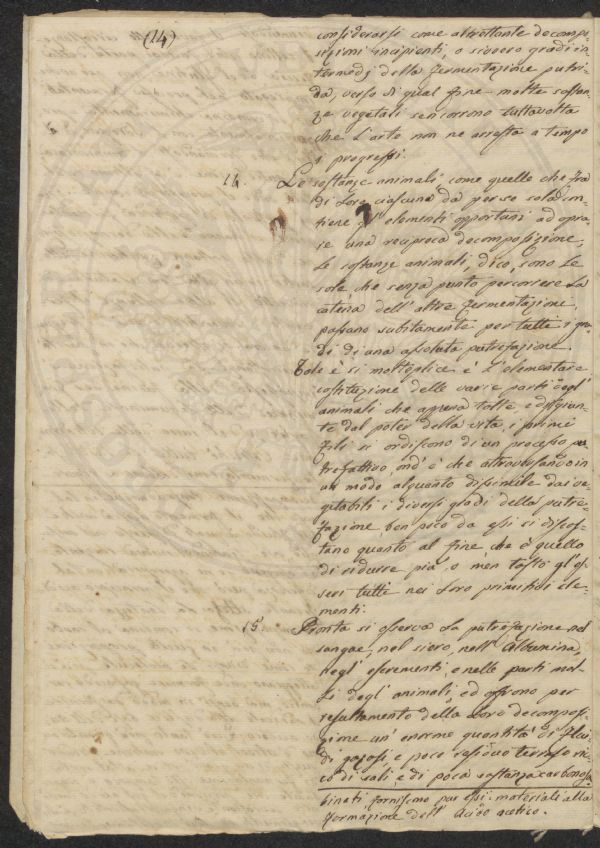 (14)
considerarsi come altrettante decompo
sizioni incipienti, o sivvero gradi in
termedj della fermentazione putri
da, verso di qual fine molte sostan
ze vegetali sen corrono tuttavolta
che l'arte non ne arresta a tempo
i progressi.
14. Le sostanze animali come quelle che fra
di loro ciascuna da per se sola con
tiene gl' elementi opportuni ad opra
re una reciproca decomposizione,
le sostanze animali, dico, sono le
sole, che senza punto percorrere la
catena dell' altre fermentazione,
passano subitamente per tutti i gra
di di una assoluta putrefazione.
Tale è si moltiplice è l'elementare
costituzione delle varie parti degl'
animali che appena tolte, e disgiun
te dal poter della vita, i primi
fili si ordiscono di un processo pu
trefattivo, ond' è che attraversando in
un modo alquanto dissimile dai ve
getabili i diversi gradi della putre
fazione, ben poco da essi si discos
tano quanto al fine, che è quello
di ridurre più, o men tosto gl' es
seri tutti nei loro primitivi ele
menti.
15. Pronta si osserva la putrefazione nel
sangue, nel siero, nell' Albumina,
negl' escrementi, e nelle parti mol
li degl' animali, ed offrono per
resultamento della loro decomposi
zione un' enorme quantità di flui
di gazosi, e poco residuo terroso ric
co di sali, e di poca sostanza carbonosa
binati, forniscono pur essi materiali alla
formazione dell' Acido acetico.